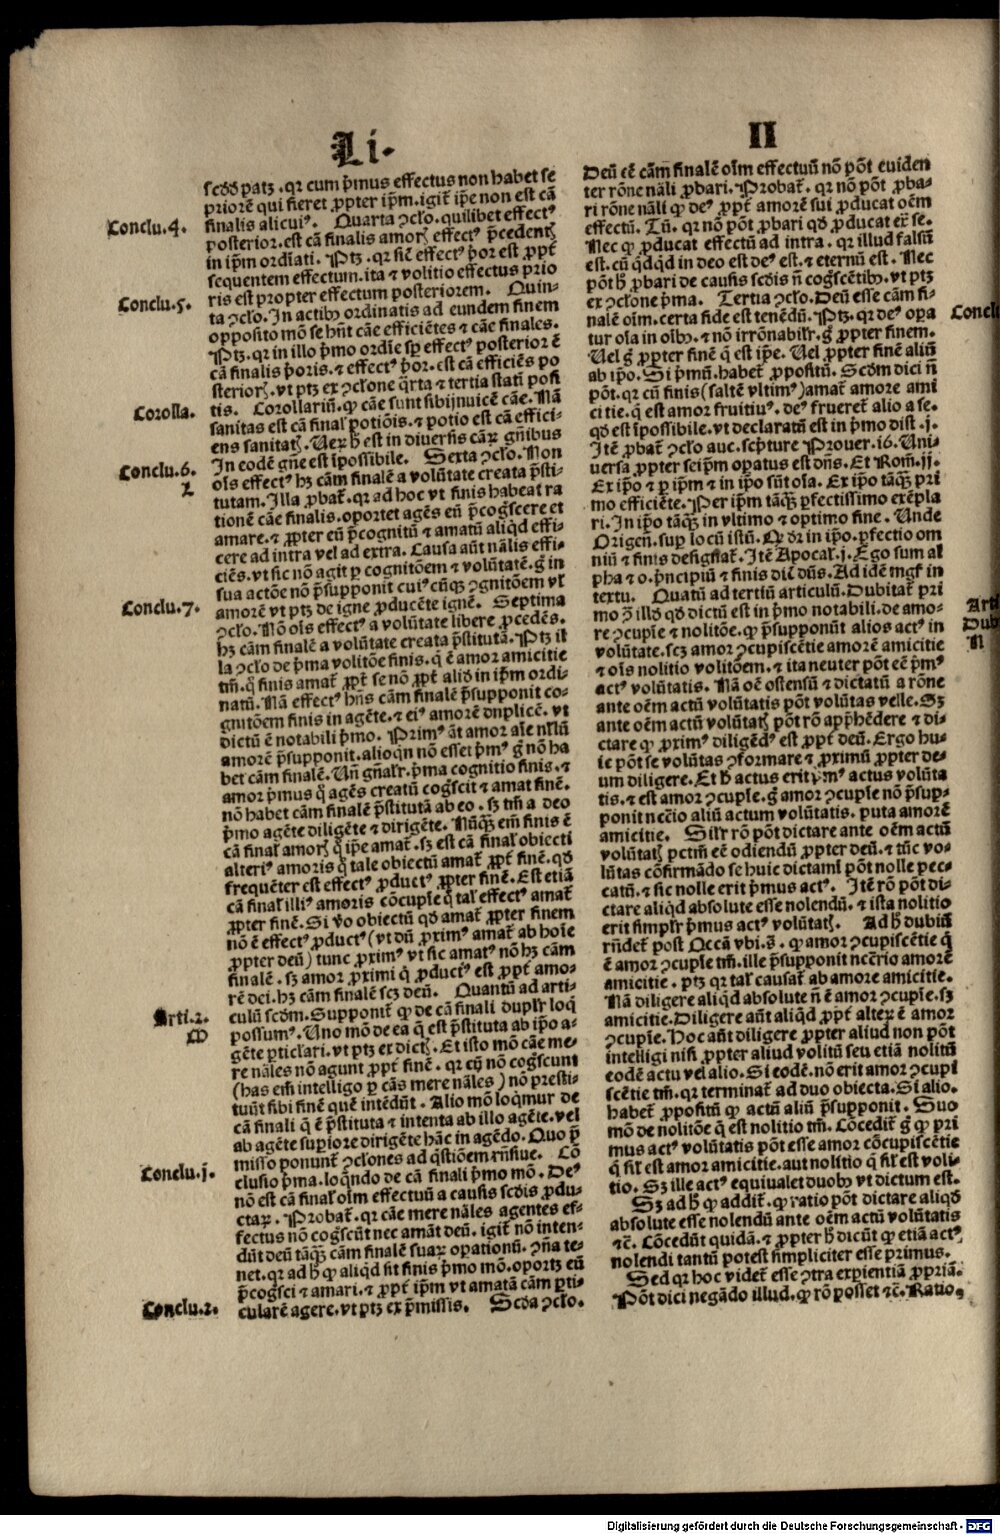 Li.
II
Conclu.4.
Conclu.5.
Corolla.
Conclu.6.
L
Conclu.7.
Arti.2.
M
Conclu.j.
Conclu.2.
scd̄o patꝫ. qꝛ cum pͥmus effectus non habet se
priorē qui fieret ꝓpter ip̄m. igit̄ ip̄e non est cā
finalis alicuiꝰ. Quarta ꝯclo. quilibet effectꝰ
posterior. est cā finalis amorꝭ effectꝰ p̄cedentꝭ
in ip̄m ordīati. Ptꝫ. qꝛ sic̄ effectꝰ pͥor est ꝓpt̄
sequentem effectum. ita ⁊ volitio effectus prio
ris est propter effectum posteriorem. Quin-
ta ꝯclo. In actibꝫ ordinatis ad eundem finem
opposito mō se hn̄t cāe efficiētes ⁊ cāe finales.
Ptꝫ. qꝛ in illo pͥmo ordīe sꝑ effectꝰ posterior ē
cā finalis pͥoris. ⁊ effectꝰ pͥor. est cā efficiēs po
steriorꝭ. vt ptꝫ ex ꝯclone qͣrta ⁊ tertia statī posi
tis. Corollariū. ꝙ cāe sunt sibijnuicē cāe. Nā
sanitas est cā final̄ potiōis. ⁊ potio est cā effici-
ens sanitatꝭ. Ueꝝ h̄ est in diuersis cāꝝ gn̄ibus
In eodē gn̄e est īpossibile. Sexta ꝯclo. Non
ois effectꝰ hꝫ cām finalē a volūtate creata p̄sti-
tutam. Illa ꝓbat̄. qꝛ ad hoc vt finis habeat ra
tionē cāe finalis. oportet agēs eū p̄cogͦscere et
amare. ⁊ ꝓpter eū p̄cognitū ⁊ amatū aliqd̄ effi-
cere ad intra vel ad extra. Causa aūt nālis effi-
ciēs. vt sic nō agit ꝑ cognitōem ⁊ volūtatē. gͦ in
sua actōe nō p̄supponit cuiꝰ cūqꝫ ꝯgnitōem vl̄
amorē vt ptꝫ de igne ꝓducēte ignē. Septima
ꝯclo. Nō ois effectꝰ a volūtate libere ꝓcedēs.
hꝫ cām finalē a volūtate creata p̄stitutā. Ptꝫ il
la ꝯclo de pͥma volitōe finis. q̄ ē amor amicitie
tm̄. qͥ finis amat̄ ꝓpt̄ se nō ꝓpt̄ aliud in ip̄m ordi-
natū. Nā effectꝰ hn̄s cām finalē p̄supponit co-
gnitōem finis in agēte. ⁊ eiꝰ amorē duplicē. vt
dictū ē notabili pͥmo. Primꝰ āt amor aīe nullū
amorē p̄supponit. alioqn̄ nō esset pͥmꝰ gͦ nō ha
bet cām finalē. Un̄ gn̄alr̄. pͥma cognitio finis. ⁊
amor pͥmus qͦ agēs creatū cogͦscit ⁊ amat finē.
nō habet cām finalē p̄stitutā ab eo. sꝫ tm̄ a deo
pͥmo agēte diligēte ⁊ dirigēte. Nūqͣꝫ em̄ finis ē
cā final̄ amorꝭ qͦ ip̄e amat̄. sꝫ est cā final̄ obiecti
alteriꝰ amoris qͦ tale obiectū amat̄ ꝓpt̄ finē. qd̄
frequēter est effectꝰ ꝓductꝰ ꝓpter finē. Est etiā
cā final̄ illiꝰ amoris cōcupīe qͦ tal̄ effectꝰ amat̄
ꝓpter finē. Si v̄o obiectū qd̄ amat̄ ꝓpter finem
nō ē effectꝰ ꝓductꝰ (vt dū ꝓximꝰ amat̄ ab hoīe
ꝓpter deū) tunc ꝓximꝰ vt sic amatꝰ nō hꝫ cām
finalē. sꝫ amor ꝓximi qͥ ꝓductꝰ est ꝓpt̄ amo-
rē dei. hꝫ cām finalē scꝫ deū. Quantū ad arti-
culū scd̄m. Supponit̄ ꝙ de cā finali duplr̄ loqͥ
possumꝰ. Uno mō de ea q̄ est p̄stituta ab ip̄o a-
gēte ꝑticlari. vt ptꝫ ex dictꝭ. Et isto mō cāe me-
re nāles nō agunt ꝓpt̄ finē. qꝛ cū nō cogͦscunt
(has em̄ intelligo ꝑ cās mere nāles) nō presti-
tuūt sibi finē quē intēdūt. Alio mō loqͥmur de
cā finali q̄ ē p̄stituta ⁊ intenta ab illo agēte. vel
ab agēte supͥore dirigēte hāc in agēdo. Quo p̄
misso ponunt̄ ꝯclones ad qͥstiōem rn̄siue. Cō
clusio pͥma. loqn̄do de cā finali pͥmo mō. Deꝰ
nō est cā final̄ oīm effectuū a causis scd̄is ꝓdu-
ctaꝝ. Probat̄. qꝛ cāe mere nāles agentes ef-
fectus nō cogͦscūt nec amāt deū. igit̄ nō inten-
dūt deū tāqͣꝫ cām finalē suaꝝ oꝑationū. ꝯn̄a te-
net. qꝛ ad h̄ ꝙ aliqd̄ sit finis pͥmo mō. oportꝫ eū
p̄cogͦsci ⁊ amari. ⁊ ꝓpt̄ ip̄m vt amatā cām ꝑti-
cularē agere. vt ptꝫ ex p̄missis. Scd̄a ꝯclo.
Deū eē cām finalē oīm effectuū nō pōt euiden
ter rōne nāli ꝓbari. Probat̄. qꝛ nō pōt ꝓba-
ri rōne nāli ꝙ deꝰ ꝓpt̄ amorē sui ꝓducat oēm
effectū. Tū. qꝛ nō pōt ꝓbari qd̄ ꝓducat ex̄ se.
Nec ꝙ ꝓducat effectū ad intra. qꝛ illud falsū
est. cū qͥdqͥd in deo est deꝰ est. ⁊ eternū est. Nec
pōt h̄ ꝓbari de causis scd̄is n̄ cogͦscētibꝫ. vt ptꝫ
ex ꝯclone pͥma. Tertia ꝯclo. Deū esse cām fi-
nalē oīm. certa fide est tenēdū. Ptꝫ. qꝛ deꝰ oꝑa
tur oīa in oībꝫ. ⁊ nō irrōnabilr̄. gͦ ꝓpter finem.
Uel gͦ ꝓpter finē qͥ est ip̄e. Uel ꝓpter finē aliū
ab ip̄o. Si pͥmū. habet̄ ꝓpositū. Scd̄m dici n̄
pōt. qꝛ cū finis (saltē vltimꝰ) amat̄ amore ami
citie. qͥ est amor fruitiuꝰ. deꝰ frueret̄ alio a se.
qd̄ est īpossibile. vt declaratū est in pͥmo dist. j.
Itē ꝓbat̄ ꝯclo auc. scpͥture Prouer. 16. Uni-
uersa ꝓpter seip̄m oꝑatus est dn̄s. Et Rom̄. 11.
Ex ip̄o ⁊ ꝑ ip̄m ⁊ in ip̄o sūt oīa. Ex ip̄o tāqͣꝫ pri
mo efficiēte. Per ip̄m tāqͣꝫ ꝑfectissimo exēpla
ri. In ip̄o tāqͣꝫ in vltimo ⁊ optimo fine. Unde
Origen̄. suꝑ locū istū. Qd̄ dr̄ in ip̄o. ꝑfectio om
niū ⁊ finis designat̄. Itē Apocal̄. j. Ego sum al
pha ⁊ o. pͥncipiū ⁊ finis dic̄ dn̄s. Ad idē mgr̄ in
textu. Quatū ad tertiū articulū. Dubitat̄ pri
mo ꝯ̄ illd̄ qd̄ dictū est in pͥmo notabili. de amo-
re ꝯcupīe ⁊ nolitōe. ꝙ p̄supponūt alios actꝰ in
volūtate. scꝫ amor ꝯcupiscētie amorē amicitie
⁊ ois nolitio volitōem. ⁊ ita neuter pōt eē pͥmꝰ
actꝰ volūtatis. Nā oē ostensū ⁊ dictatū a rōne
ante oēm actū volūtatis pōt volūtas velle. Sꝫ
ante oēm actū volūtatꝭ pōt rō app̄hēdere ⁊ di-
ctare ꝙ ꝓximꝰ diligēdꝰ est ꝓpt̄ deū. Ergo hu-
ic pōt se volūtas ꝯformare ⁊ ꝓximū ꝓpter de-
um diligere. Et h̄ actus erit pͥmꝰ actus volūta
tis. ⁊ est amor ꝯcupīe. gͦ amor ꝯcupīe nō p̄sup-
ponit nec̄io aliū actum volūtatis. puta amorē
amicitie. Silr̄ rō pōt dictare ante oēm actū
volūtatꝭ pctm̄ eē odiendū ꝓpter deū. ⁊ tūc vo-
lūtas cōfirmādo se huic dictami pōt nolle pec-
catū. ⁊ sic nolle erit pͥmus actꝰ. Itē rō pōt di-
ctare aliqd̄ absolute esse nolendū. ⁊ ista nolitio
erit simplr̄ pͥmus actꝰ volūtatꝭ. Ad h̄ dubiū
rn̄det̄ post Occā vbi. s̄. ꝙ amor ꝯcupiscētie qͥ
ē amor ꝯcupīe tm̄. ille p̄supponit nec̄rio amorē
amicitie. ptꝫ qꝛ tal̄ causat̄ ab amore amicitie.
Nā diligere aliqd̄ absolute n̄ ē amor ꝯcupīe. sꝫ
amicitie. Diligere aūt aliqd̄ ꝓpt̄ alteꝝ ē amor
ꝯcupīe. Hoc aūt diligere ꝓpter aliud non pōt
intelligi nisi ꝓpter aliud volitū seu etiā nolitū
eodē actu vel alio. Si eodē. nō erit amor ꝯcupi
scētie tm̄. qꝛ terminat̄ ad duo obiecta. Si alio.
habet̄ ꝓpositū ꝙ actū aliū p̄supponit. Suo
mō de nolitōe q̄ est nolitio tm̄. Cōcedit̄ gͦ ꝙ pri
mus actꝰ volūtatis pōt esse amor cōcupiscētie
qͥ sil̄ est amor amicitie. aut nolitio q̄ sil̄ est voli-
tio. Sꝫ ille actꝰ equiualet duobꝫ vt dictum est.
Sꝫ ad h̄ ꝙ addit̄. ꝙ ratio pōt dictare aliqd̄
absolute esse nolendū ante oēm actū volūtatis
⁊c̄. Cōcedūt quidā. ⁊ ꝓpter h̄ dicūt ꝙ etiā actꝰ
nolendi tantū potest simpliciter esse primus.
Sed qꝛ hoc videt̄ esse ꝯtra expientiā ꝓpriā.
Pōt dici negādo illud. ꝙ rō posset ⁊c̄. Ratio,
Digitalisierung gefördert durch die Deutsche Forschungsgemeinschaft - DFG